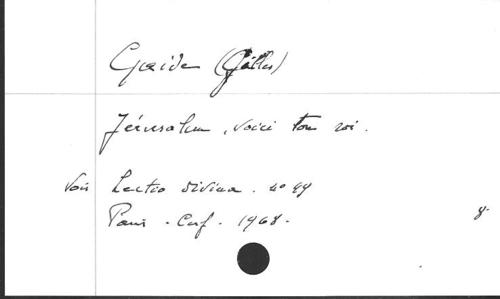 Gaide (Gilles)
Jérusalem, voici ton roi.
Voir Lectio divina. n° 49
Paris - Cerf - 1968.
8.